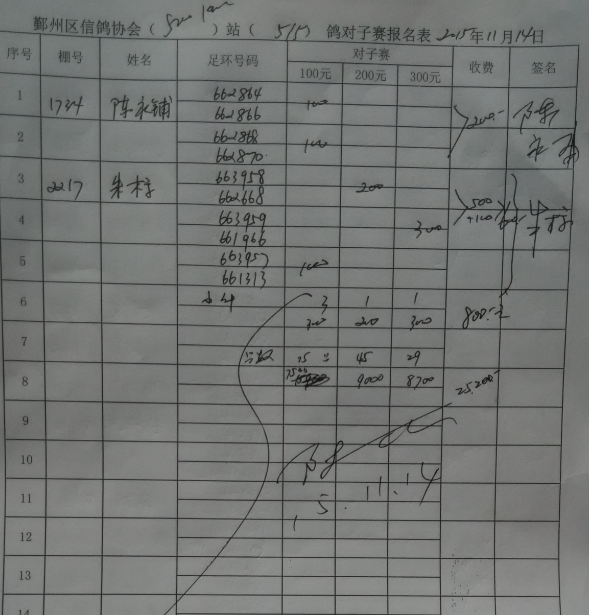 鄞州区信鸽协会（500 km）站（5/5）鸽对子赛报名表 2015年11月14日
序号 棚号 姓名 足环号码 对子赛 收费 签名
100元 200元 300元
1 1734 陈永辅 662864 100
662866 200.-
2 662868 100
662870
3 2217 朱栋 663958 200
662668 500
4 663959 300 +100
661966
5 663957 100
661313
6 小计 3 1 1 800.-
300 200 300
7
总数 75 45 29
8 7500 9000 8700 25200
9
10
11 15.11.14
12
13
14